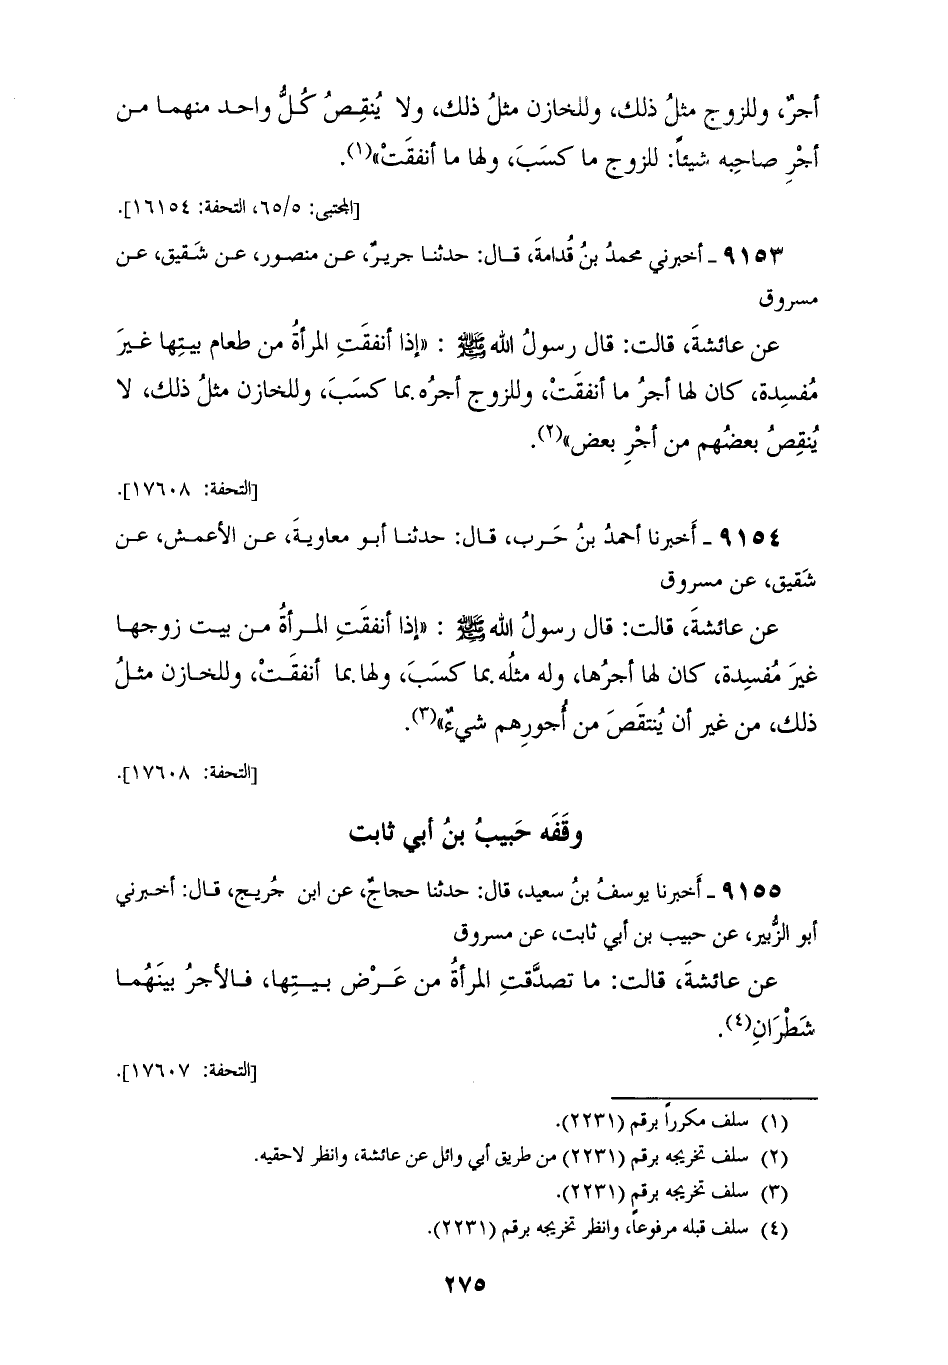 أجرٌ، وللزوج مثلُ ذلك، وللخازن مثلُ ذلك، ولا يُنقِصُ كُلُّ واحد منهما من
أجْرِ صاحِبه شيئاً: للزوج ما كسَبَ، ولها ما أنفقَتْ»(١).
[المجتبى: ٦٥/٥، التحفة: ١٦١٥٤].
٩١٥٣ ـ أخبرني محمدُ بنُ قُدامةَ، قال: حدثنا جريرٌ، عن منصور، عن شَقيق، عن
مسروق
عن عائشةَ، قالت: قال رسولُ الله ﷺ : «إذا أنفقَتِ المرأةُ من طعام بيتِها غيرَ
مُفسِدة، كان لها أجرُ ما أنفقَتْ، وللزوج أجرُه بما كسَبَ، وللخازن مثلُ ذلك، لا
يُنقِصُ بعضُهم من أجْرِ بعض»(٢).
[التحفة: ١٧٦٠٨].
٩١٥٤ ـ أَخبرنا أحمدُ بنُ حَرب، قال: حدثنا أبو معاويةَ، عن الأعمش، عن
شَقيق، عن مسروق
عن عائشةَ، قالت: قال رسولُ الله ﷺ : «إذا أنفقَتِ المرأةُ من بيت زوجها
غيرَ مُفسِدة، كان لها أجرُها، وله مثلُه بما كسَبَ، ولها بما أنفقَتْ، وللخازن مثلُ
ذلك، من غير أن يُنتقَصَ من أُجورِهم شيءٌ»(٣).
[التحفة: ١٧٦٠٨].
وقَفَه حَبيبُ بنُ أبي ثابت
٩١٥٥ ـ أَخبرنا يوسفُ بنُ سعيد، قال: حدثنا حجاجٌ، عن ابن جُريج، قال: أخبرني
أبو الزُّبير، عن حبيب بن أبي ثابت، عن مسروق
عن عائشةَ، قالت: ما تصدَّقتِ المرأةُ من عَرْض بيتِها، فالأجرُ بينَهُما
شَطْرَانِ(٤).
[التحفة: ١٧٦٠٧].
(١) سلف مكرراً برقم (٢٢٣١).
(٢) سلف تخريجه برقم (٢٢٣١) من طريق أبي وائل عن عائشة، وانظر لاحقيه.
(٣) سلف تخريجه برقم (٢٢٣١).
(٤) سلف قبله مرفوعاً، وانظر تخريجه برقم (٢٢٣١).
٢٧٥